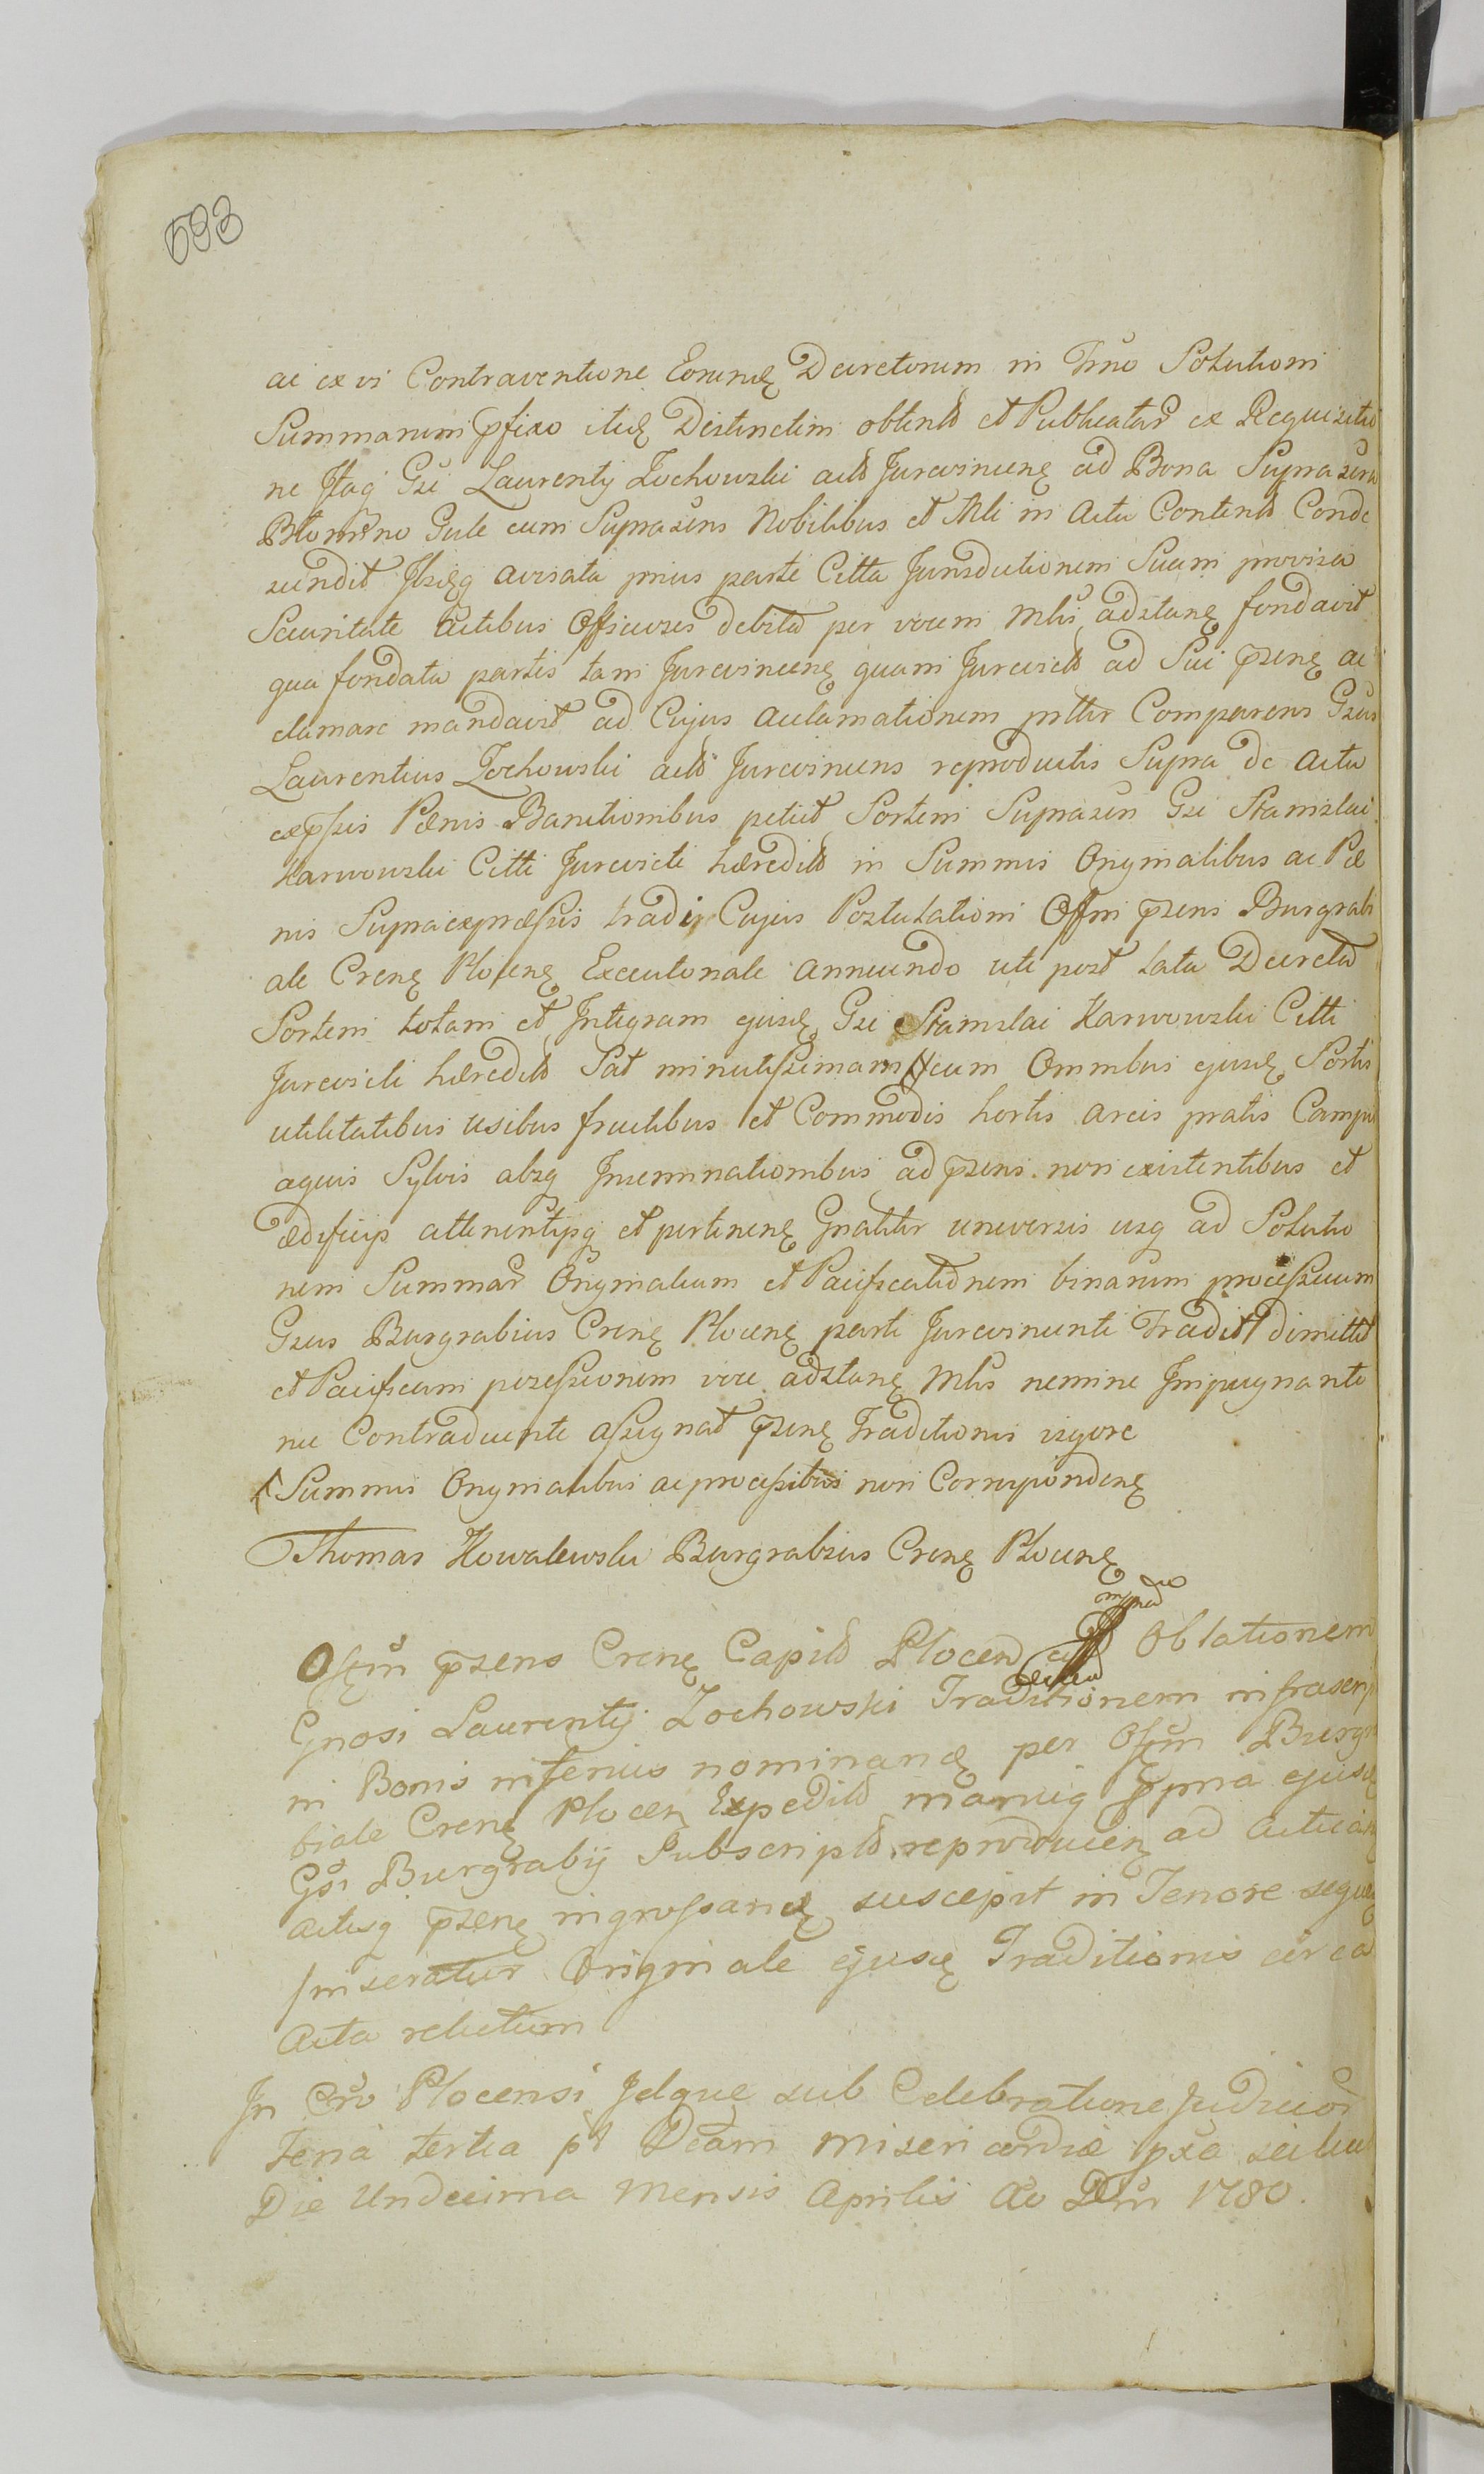 593
ac ex vi Contraventione Eorundę Decretorum in Trno Solutioni
Summarum pfixo itidę Distinctim obtent et Publicatar ex Requisitio
ne Itaq Gsi Laurentij Zochowski act Jurevincenę ad Bona Suprascra
Blomino Gule cum Suprascrns Nobilibus et Mli in Actu Content Conde
scendit Ibidęq avisata prius parte Citta Jurisdictionem Suam provisa
Securitate Actibus Officiosis debita per vocem Mlis adstanę fondavit
qua fondata partes tam Jurevincenę quam Jurevict ad Sui pzenę ac
clamare mandavit ad Cujus Acclamationem pnttr Comparens Gsus
Laurentius Zochowski act Jurevincens reproductis Supra de Actu
expssis Pænis Banitionibus petiit Sortem Suprascn Gsi Stanislai
Karwowski Citti Jurevicti hæredit in Summis Originalibus ac Pæ
nis Supraexpræssis tradi Cujus Postulationi Offm pzens Burgrab
ale Crenę Plocenę Executoriale annuendo uti post lata Decreta
Sortem totam et Integram ejusdę Gsi Stanislai Karwowski Citti
Jurevicti hæredit Sat minutissimam # cum Omnibus ejusdę Sortis
utilitatibus usibus fructibus et Commodis hortis areis pratis Campis
aquis Sylvis absq Inseminationibus ad pzens non existentibus et
ædificijs attinentijsq et pertinenę Gnalitr universis usq ad Solutio
nem Summar Originalium et Pacificationem binarum processuum
Gsus Burgrabius Crenę Plocenę parti Jurevincenti Tradit dimittit
et Pacificam possessionem voce adstanę Mlis nemine Impugnante
nec Contradicente assignat pzenę Traditionis vigore
# Summis Originalibus ac processibus non Correspondenę
Thomas Kowalewski Burgrabius Crenę Plocenę
mppria
Offm pzens Crenę Capit Plocen ad Oblationem
Gnosi Laurentij Zochowski Traditionem infrascrip
in Bonis inferius nominandę per Offm Burgra
biale Crenę Plocen Expedit manuq ppria ejusdę
Gsi Burgrabij Subscript reproducen ad Actican
Actisq pzenę ingrossandę suscepit in Tenore sequen
Inseratur Originale ejusdę Traditionis circa
Acta relictum
In Cro Plocensi Idque sub Celebratione Judicior
Feria tertia pt Dcam Misericordiæ pxa scilicet
Die Undecima Mensis Aprilis Ao Dni 1780.